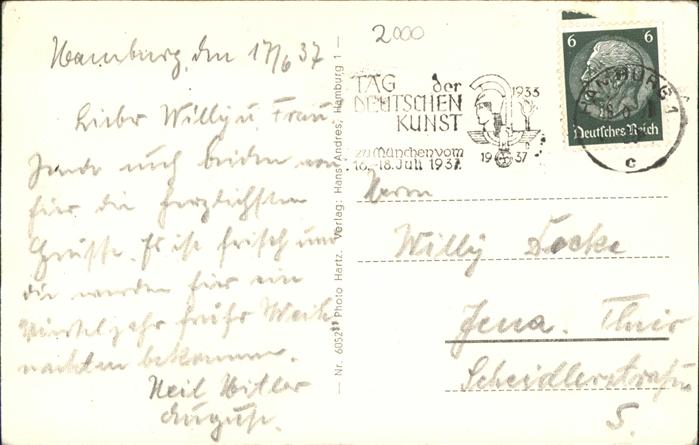 Hamburg, den 17/6 37
Lieber Willy u. Frau
Sende euch beiden von
für die herzlichsten
Grüsse. Es ist frisch und
die werden für ein
Vierteljahr früher Weih
nachten bekommen.
Heil Hitler
August.
— Nr. 6052 Photo Hartz. Verlag: Hans Andres, Hamburg 1 —
2000
TAG der
DEUTSCHEN
KUNST
zu München vom
16.-18. Juli 1937.
1933
1937
HAMBURG 1
c
6 6
Deutsches Reich
Herrn
Willy
Jena. Thür
Scheidlerstraße
5.